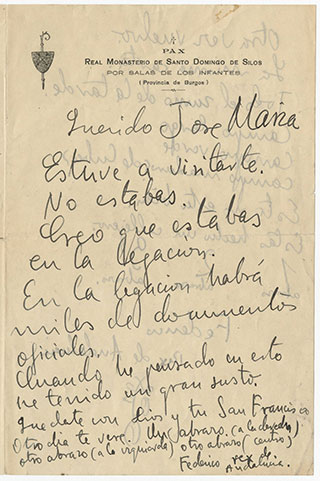 PAX
REAL MONASTERIO DE SANTO DOMINGO DE SILOS
POR SALAS DE LOS INFANTES
(Provincia de Burgos)
Querido Jose Maria
Estuve a visitarte.
No estabas.
Creo que estabas
en la legación.
En la legacion habrá
miles de documentos
oficiales.
Cuando he pensado en esto
he tenido un gran susto.
Quedate con Dios y tu San Francisco
Otro dia te vere. Un abrazo (a la derecha)
otro abrazo (a la izquierda) otro abrazo (centro)
Federico rey de
Andalucia.